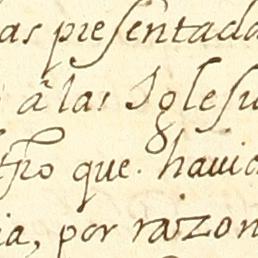 as presentada
â las Iglesi
que havia
ia, por razon